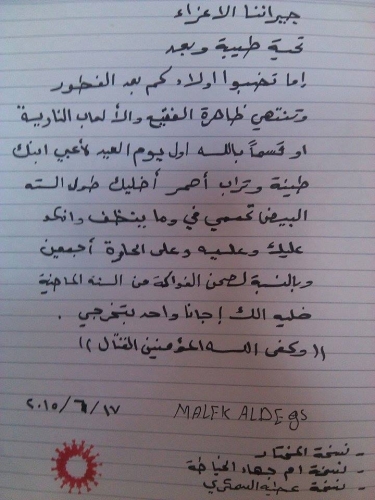 جيراننا الاعزاء
تحية طيبة وبعد
إما تضبوا اولادكم بعد الفطور
وتنتهي ظاهرة الفقيع والألعاب النارية
او قسماً بالله اول يوم العيد لأعبي ابنك
طينة وتراب أحمر أخليك طول الستة
البيض تحممي في وما ينظف وانكد
عليك وعليه وعلى الحارة أجمعين
وبالنسبة لصحن الفواكه من السنه الماضية
خليه الك إجانا واحد بتخرجي .
(( وكفى الله المؤمنين القتال ))
٢٠١٥/٦/١٧ MALEK ALDEgs
- نسخة المختار
- نسخة ام جهاد الخياطة
- نسخة السمكري